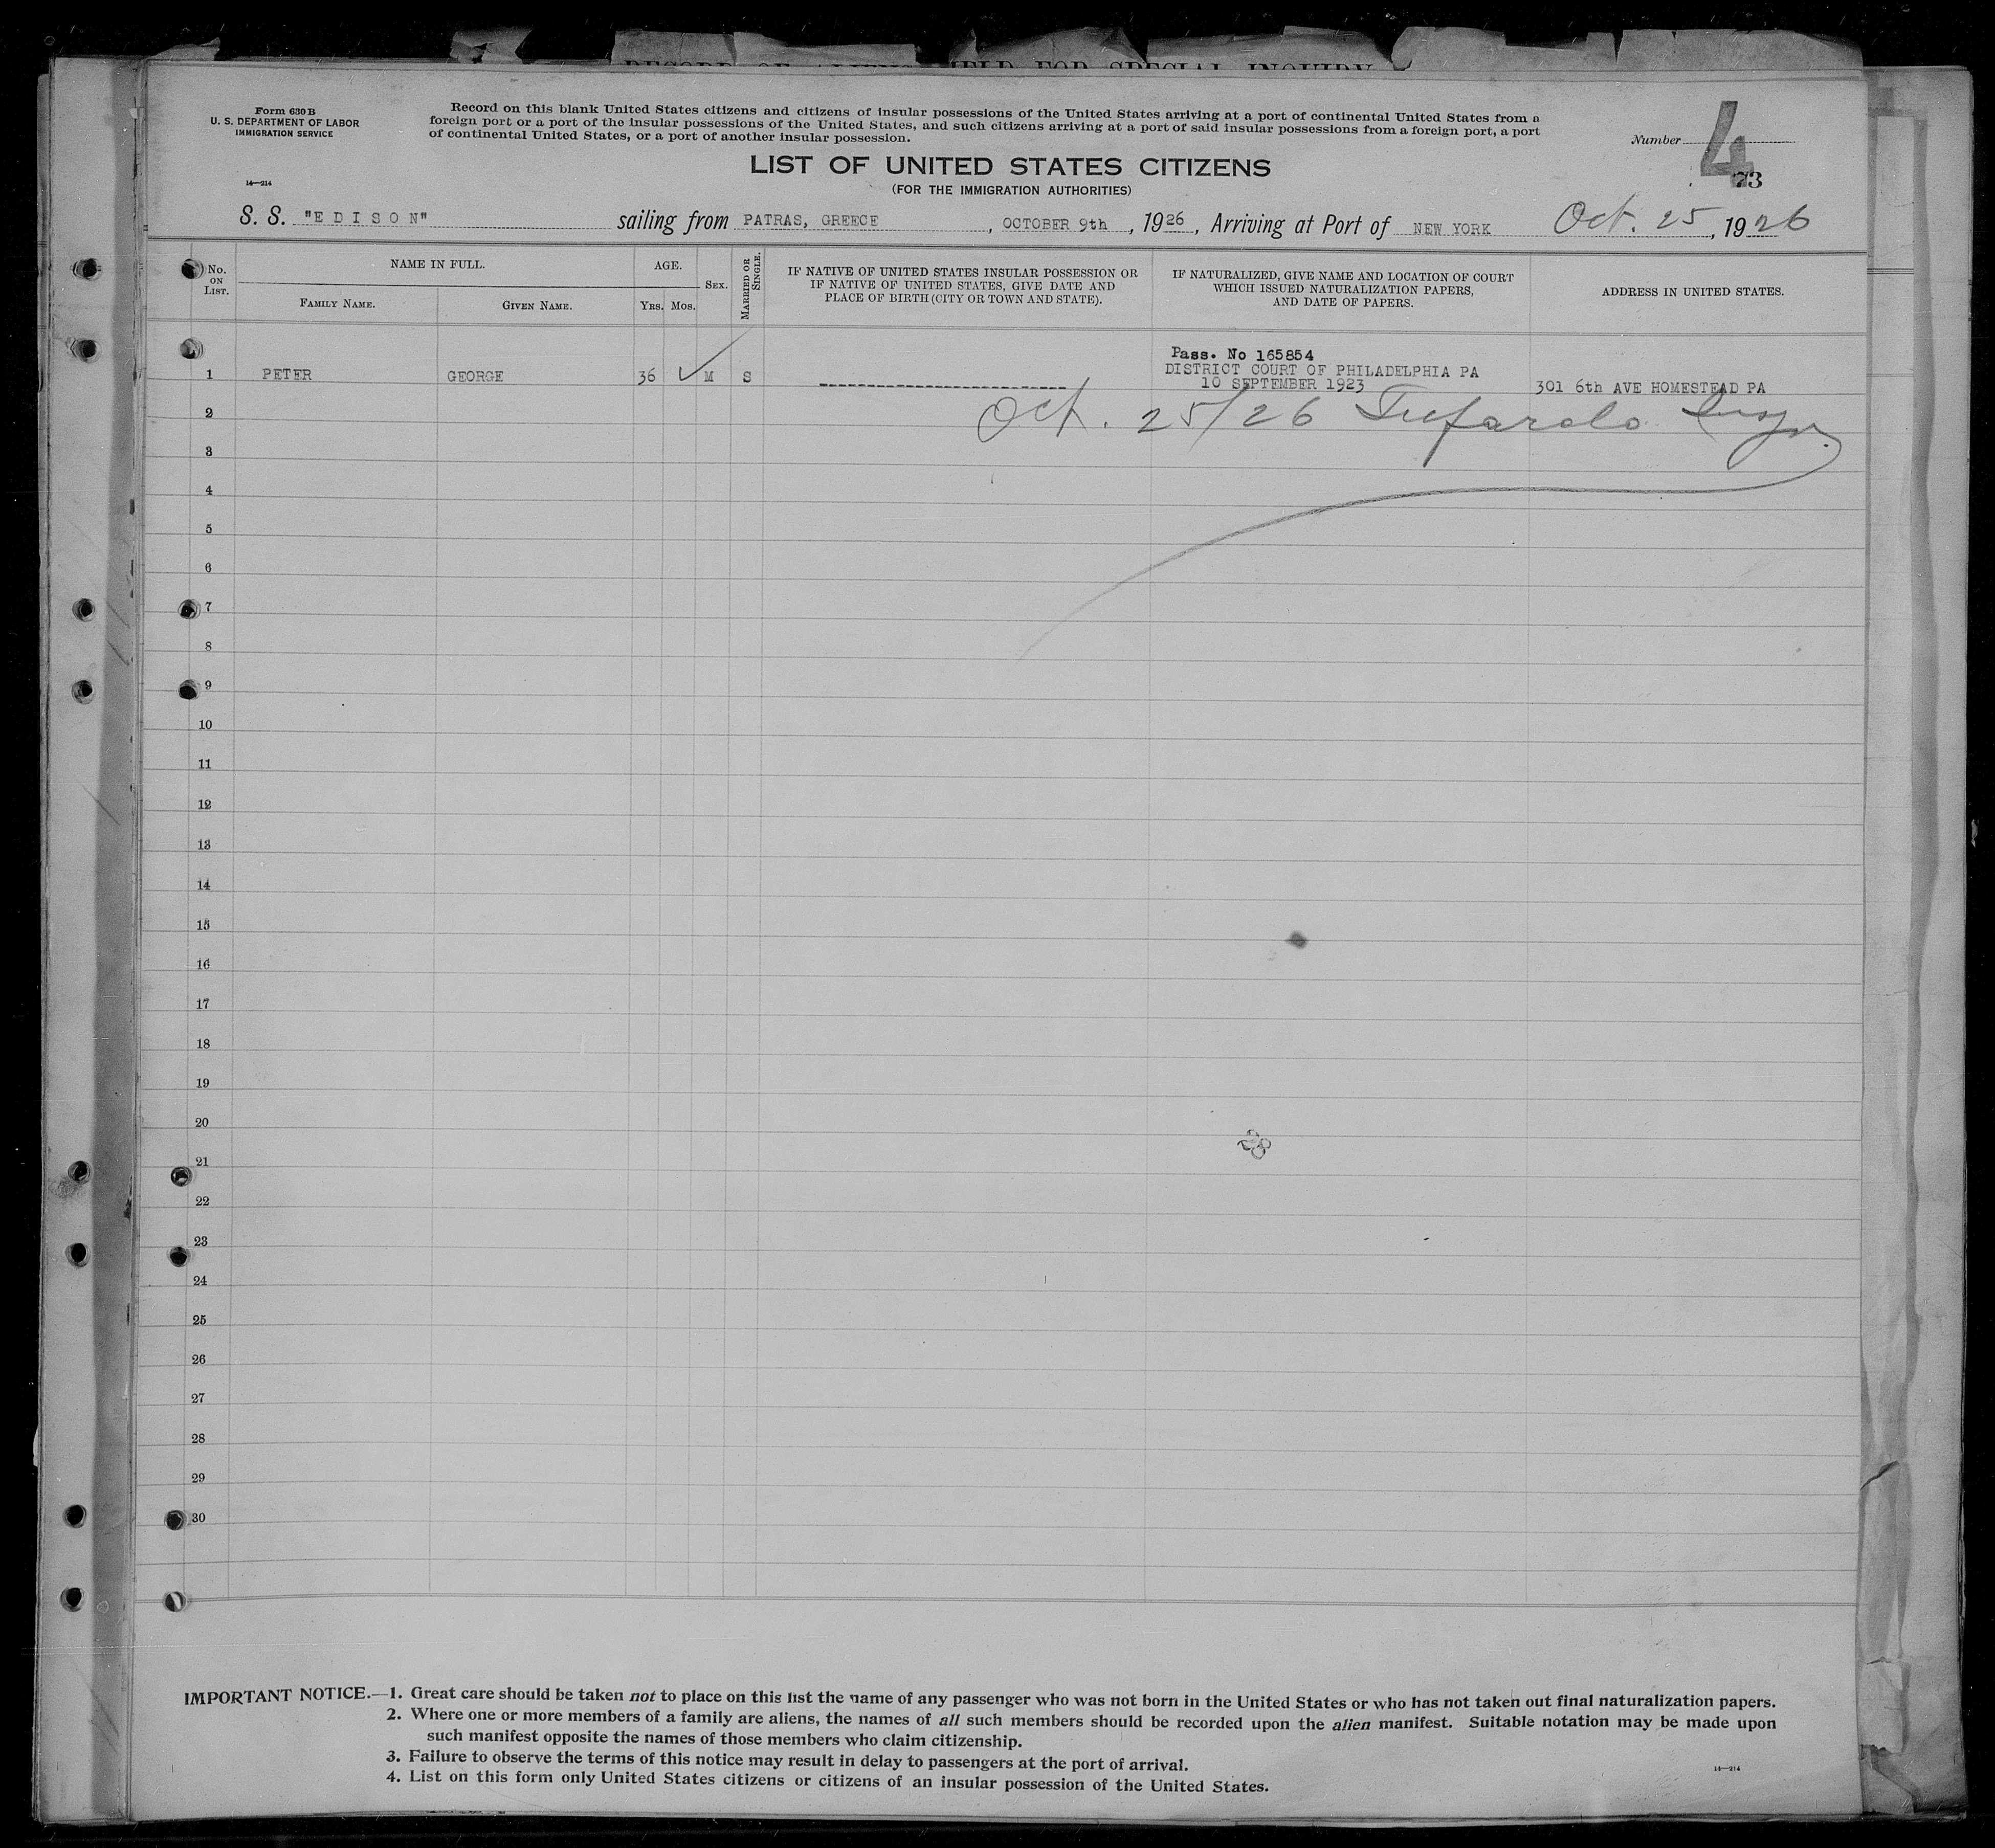 Form 630 B
U. S. DEPARTMENT OF LABOR
IMMIGRATION SERVICE
14—214
Record on this blank United States citizens and citizens of insular possessions of the United States arriving at a port of continental United States from a
foreign port or a port of the insular possessions of the United States, and such citizens arriving at a port of said insular possessions from a foreign port, a port
of continental United States, or a port of another insular possession.
Number 4
73
LIST OF UNITED STATES CITIZENS
(FOR THE IMMIGRATION AUTHORITIES)
S. S. "EDISON" sailing from PATRAS, GREECE, OCTOBER 9th, 1926, Arriving at Port of NEW YORK Oct. 25, 1926
No. ON LIST.
NAME IN FULL.
FAMILY NAME.
GIVEN NAME.
AGE.
YRS. MOS.
SEX.
MARRIED OR SINGLE.
IF NATIVE OF UNITED STATES INSULAR POSSESSION OR
IF NATIVE OF UNITED STATES, GIVE DATE AND
PLACE OF BIRTH (CITY OR TOWN AND STATE).
IF NATURALIZED, GIVE NAME AND LOCATION OF COURT
WHICH ISSUED NATURALIZATION PAPERS,
AND DATE OF PAPERS.
ADDRESS IN UNITED STATES.
Pass. No 165854
1 PETER GEORGE 36 ✓ M S DISTRICT COURT OF PHILADELPHIA PA
10 SEPTEMBER 1923 301 6th AVE HOMESTEAD PA
2 Oct. 25/26
3
4
5
6
7
8
9
10
11
12
13
14
15
16
17
18
19
20
21
22
23
24
25
26
27
28
29
30
IMPORTANT NOTICE.—1. Great care should be taken not to place on this list the name of any passenger who was not born in the United States or who has not taken out final naturalization papers.
2. Where one or more members of a family are aliens, the names of all such members should be recorded upon the alien manifest. Suitable notation may be made upon
such manifest opposite the names of those members who claim citizenship.
3. Failure to observe the terms of this notice may result in delay to passengers at the port of arrival.
4. List on this form only United States citizens or citizens of an insular possession of the United States.
14—214